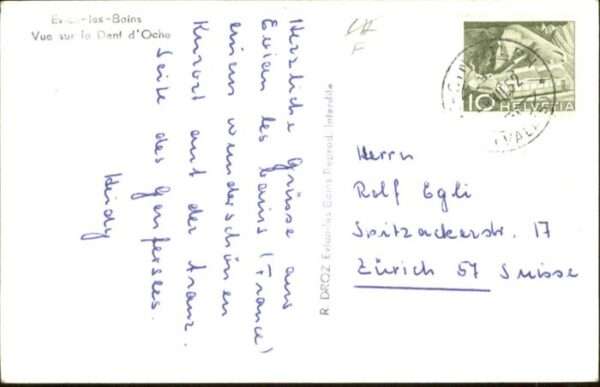 Evian-les-Bains
Vue sur la Dent d'Oche
Herzliche Grüsse aus
Evian les bains (France)
einem wunderschönen
Kurort auf der franz.
Seite des Genfersees.
Heidy
R. DROZ Evian-les-Bains Reprod. Interdite
10 HELVETIA
Herrn
Rolf Egli
Spitzackerstr. 17
Zürich 57 Suisse